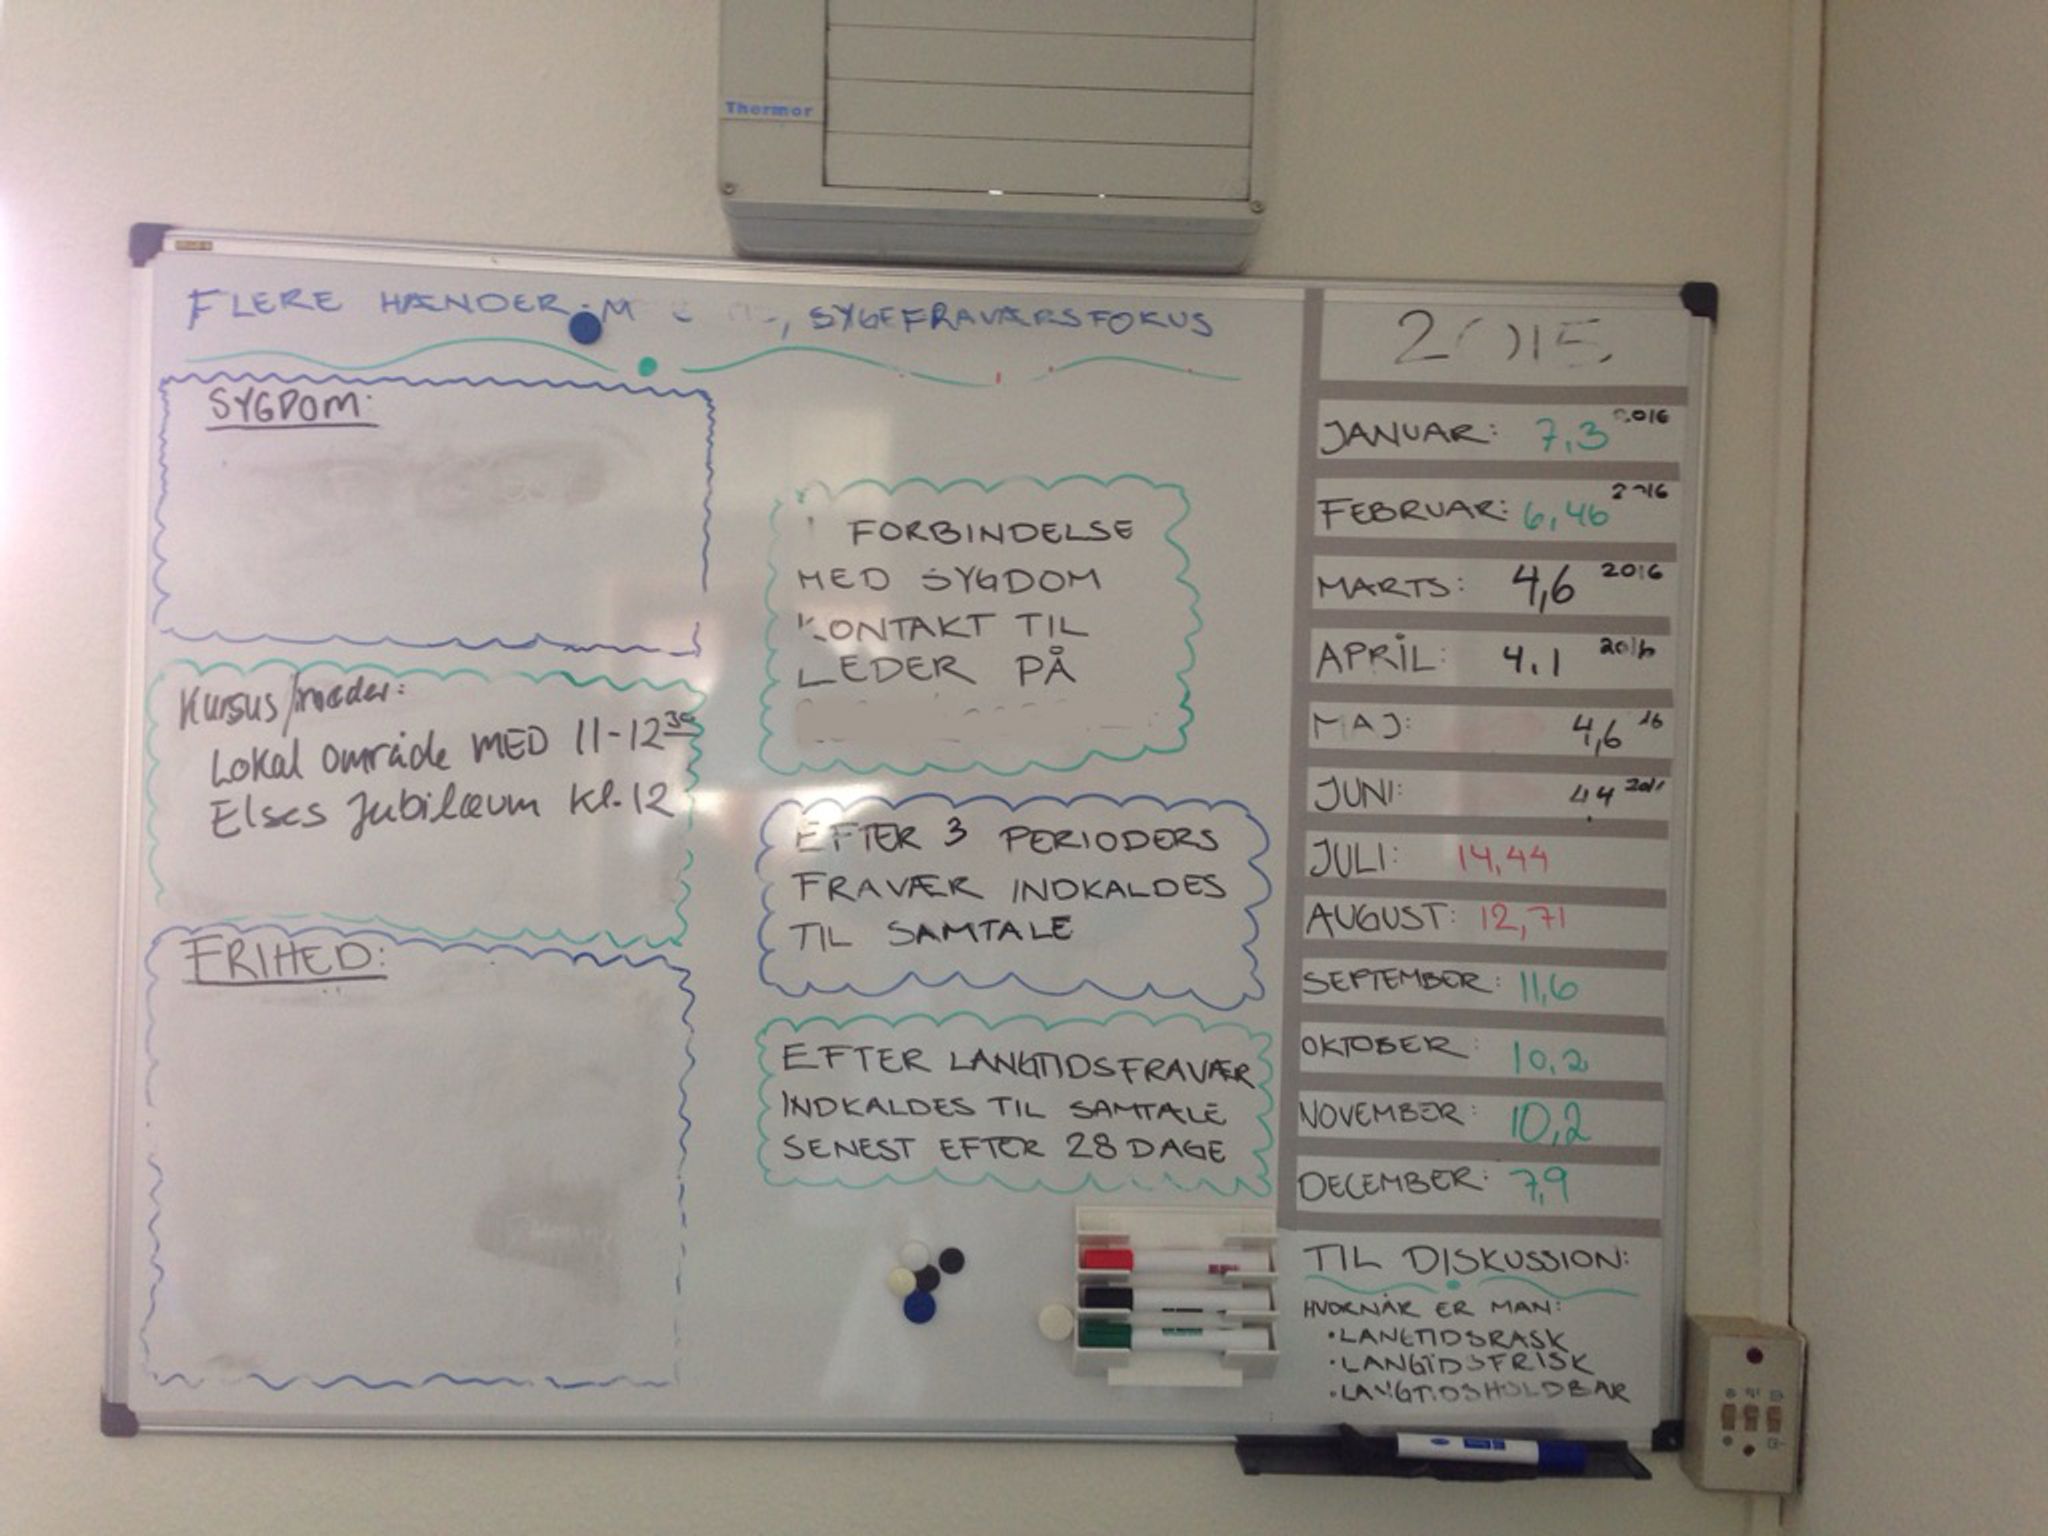 Thermor
FLERE HÆNDER M , SYGEFRAVÆRSFOKUS
SYGDOM:
Kursus/møder:
Lokal område MED 11-12³⁰
Elses Jubilæum Kl. 12
FRIHED:
I FORBINDELSE
MED SYGDOM
KONTAKT TIL
LEDER PÅ
EFTER 3 PERIODERS
FRAVÆR INDKALDES
TIL SAMTALE
EFTER LANGTIDSFRAVÆR
INDKALDES TIL SAMTALE
SENEST EFTER 28 DAGE
2015
JANUAR: 7,3 2016
FEBRUAR: 6,46 2016
MARTS: 4,6 2016
APRIL: 4.1 2016
MAJ: 4,6 16
JUNI: 4,4
JULI: 14,44
AUGUST: 12,71
SEPTEMBER: 11,6
OKTOBER: 10,2
NOVEMBER: 10,2
DECEMBER: 7,9
TIL DISKUSSION:
HVORNÅR ER MAN:
• LANGTIDSRASK
• LANGTIDSFRISK
• LANGTIDSHOLDBAR